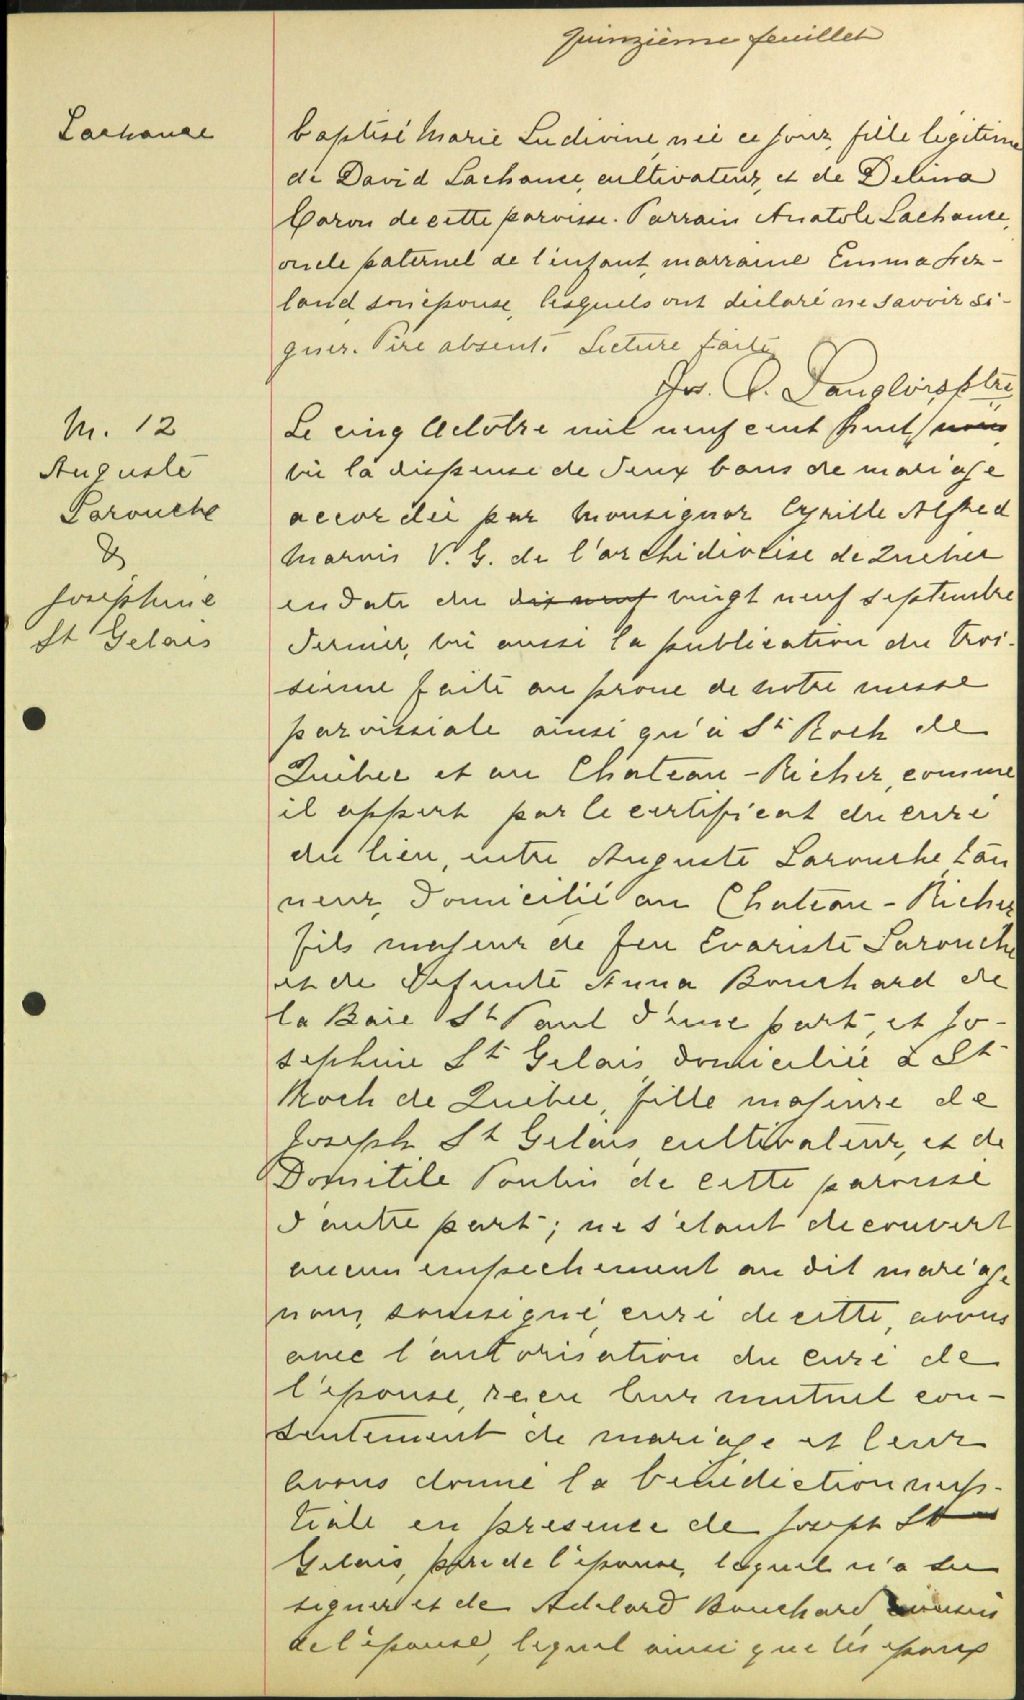 quinzième feuillet
Lachance
baptisé Marie Ludivine, née ce jour, fille légitime
de David Lachance, cultivateur, et de Delina
Caron de cette paroisse. Parrain Anatole Lachance,
oncle paternel de l'enfant, marraine Emma Fer-
land, son épouse, lesquels ont déclaré ne savoir si-
gner. Père absent. Lecture faite
Jos. O. Langlois, ptre
M. 12
Auguste
Larouche
&
Joséphine
St Gelais
Le cinq Octobre mil neuf cent huit,
vu la dispense de deux bans de mariage
accordée par Monsignor Cyrille Alfred
Marois V. G. de l'archidiocèse de Québec
en date du dix neuf vingt neuf septembre
dernier, vu aussi la publication du troi-
sième faite au prone de notre messe
paroissiale ainsi qu'à St Roch de
Québec et au Chateau-Richer, comme
il appert par le certificat du curé
du lieu, entre Auguste Larouche, tan
neur, domicilié au Chateau-Richer
fils majeur de feu Evariste Larouche
et de defunte Anna Bouchard de
la Baie St Paul d'une part, et Jo-
sephine St Gelais, domiciliée à St
Roch de Québec, fille majeure de
Joseph St Gelais, cultivateur, et de
Domitile Poulin de cette paroisse
d'autre part; ne s'étant decouvert
aucun empechement au dit mariage
nous, soussigné, curé de cette, avons
avec l'autorisation du curé de
l'épouse, reçu leur mutuel con-
sentement de mariage et leur
avons donné la bénédiction nup-
tiale en presence de Joseph St
Gelais, père de l'épouse, lequel n'a su
signer et de Adelard Bouchard, cousin
de l'épouse, lequel ainsi que les epoux